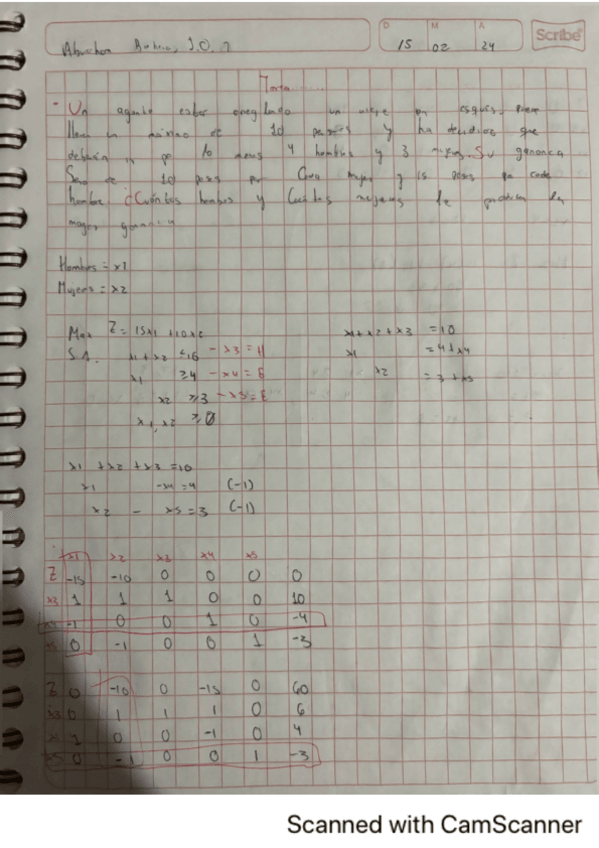 D M A
15 02 24
Scribe
Tarea
- Un agente esta un viaje en esquis, puede
lleva un máximo de 10 y ha que
4 hombres y 3 mujeres. Su ganancia
de 10 por Cada mujer y 15 por cada
hombre ¿Cuántos hombres y Cuántas mujeres le la
mayor ganancia
Hombres = x1
Mujeres = x2
Max Z = 15x1 + 10x2
S.A. x1 + x2 - x3 = H
x1 ≥ 4 - x4 = E
x2 ≥ 3 - x5 = E
x1, x2 ≥ 0
x1 + x2 + x3 = 10
x1 = 4 + x4
x2 = 3 + x5
x1 + x2 + x3 = 10
x1 - x4 = 4 (-1)
x2 - x5 = 3 (-1)
x1 x2 x3 x4 x5
Z -15 -10 0 0 0 0
x3 1 1 1 0 0 10
x4 -1 0 0 1 0 -4
x5 0 -1 0 0 1 -3
Z 0 -10 0 -15 0 60
x3 0 1 1 1 0 6
x1 1 0 0 -1 0 4
x5 0 -1 0 0 1 -3
Scanned with CamScanner